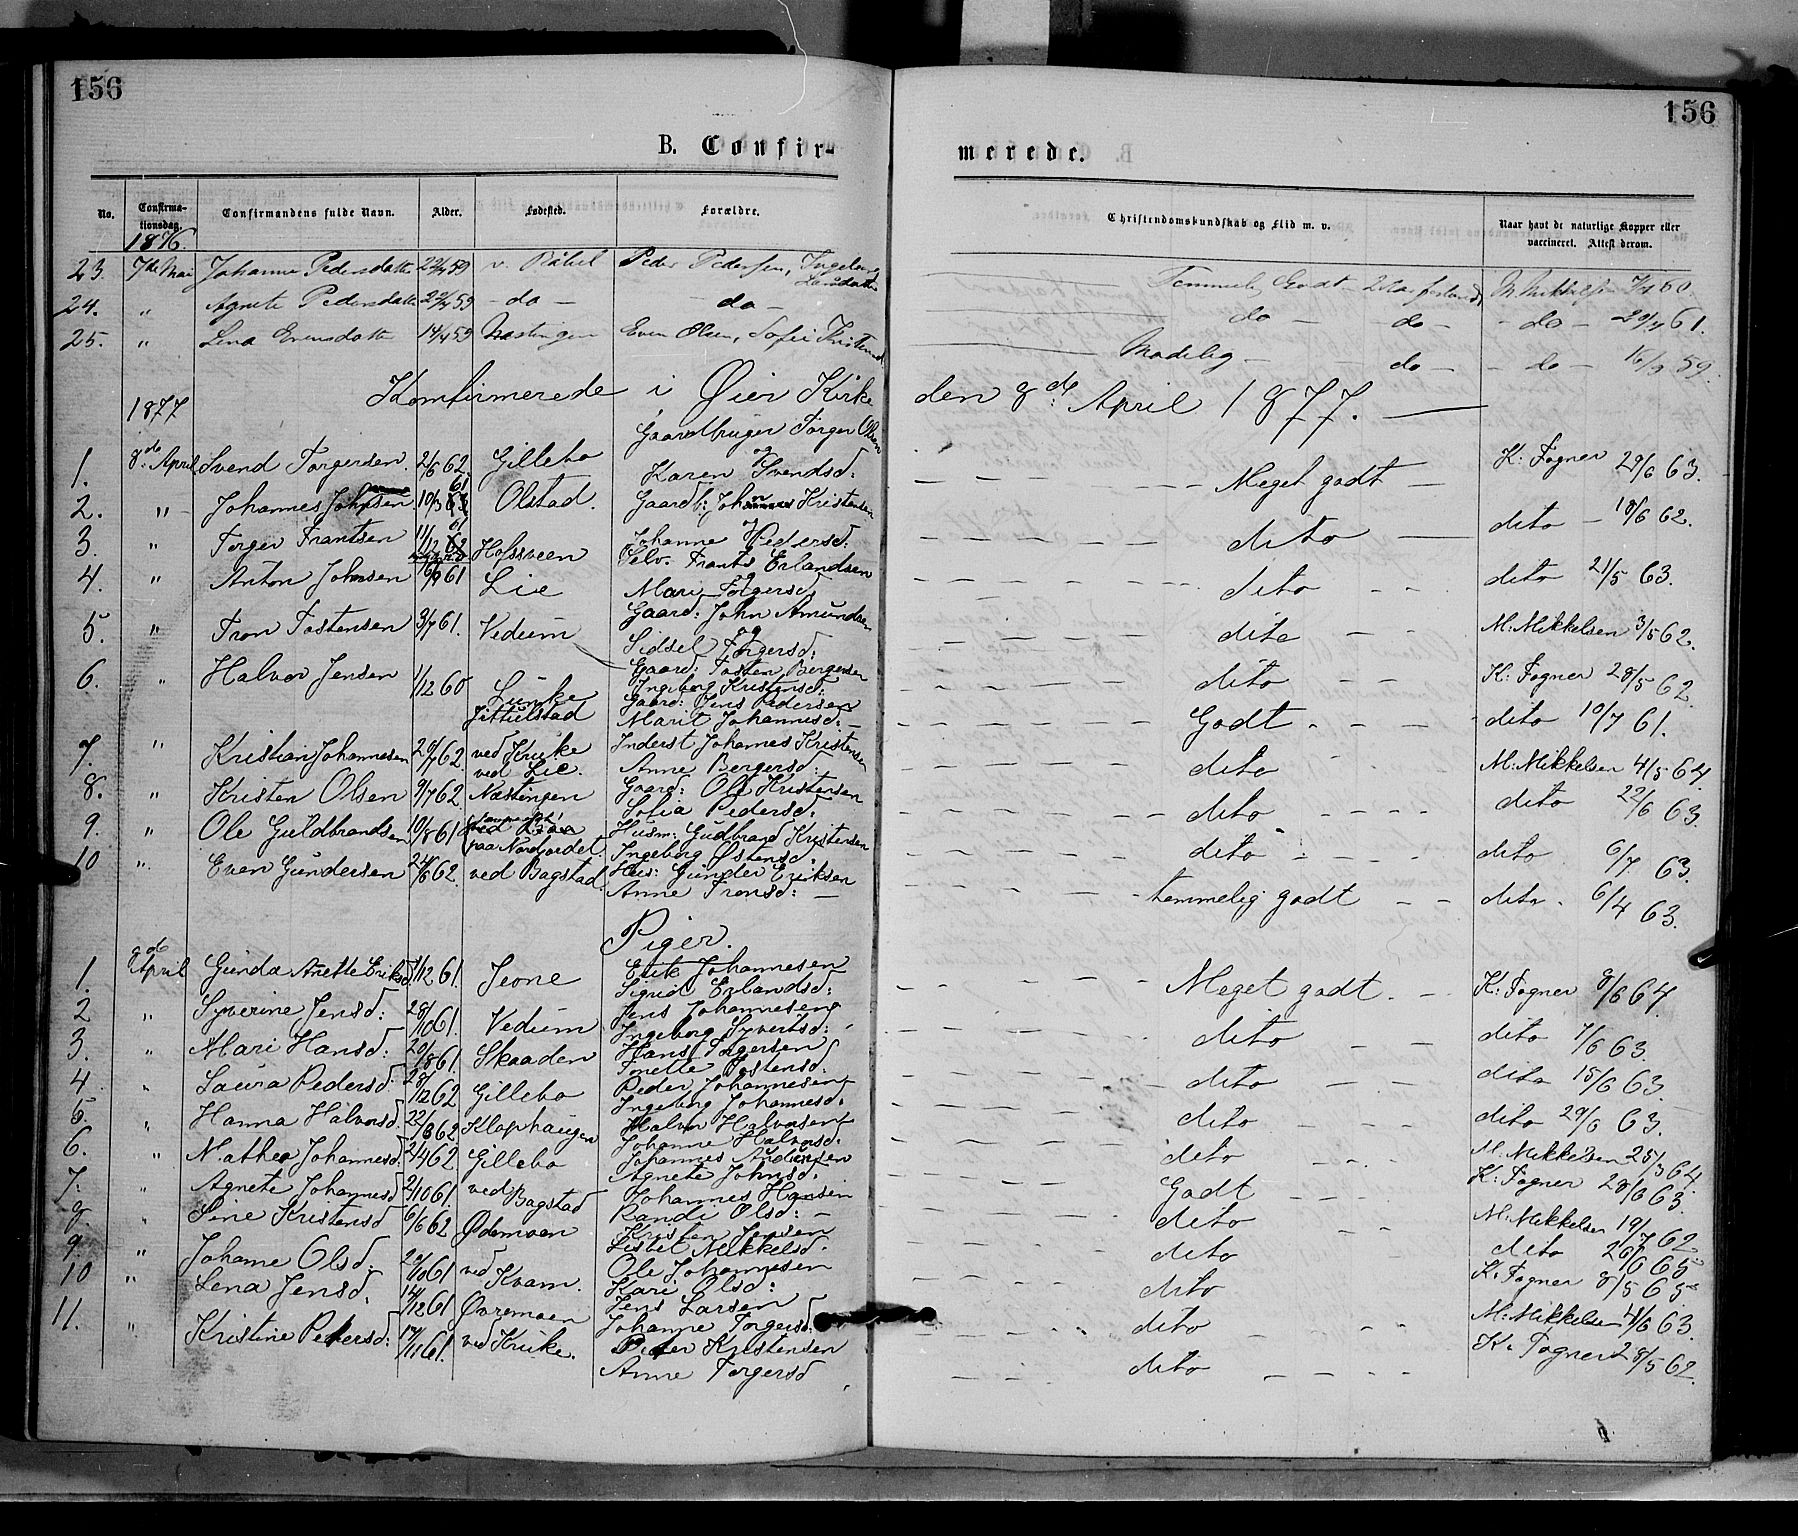 156
156
B. Confir-
merede.
No.
Confirma-
tionsdag.
Confirmandens fulde Navn.
Alder.
Fødested.
Forældre.
Christendomskundskab og Flid m. v.
Naar havt de naturlige Kopper eller
vaccineret. Attest derom.
1876.
23. 7de Mai Johanne Pedersdatter 59 v. Peder Pedersen, Ingeborg
Larsdatter
Temmelig Godt M. Mikkelsen 60.
24. " Agnete Pedersdatter 59 - do - - do -
do - do - - do - 29/7 61.
25. " Lena Evensdatter 14/4 59 Næstingen Even Olsen, Sofie
Maadelig - - do - - do - 16/9 59.
Konfirmerede i Øier Kirke den 8de April 1877.
1877
Gaardbruger Torger Olsen
1. 8de April Svend Torgersen 2/6 62. Gillebo og
Karen Svendsd: Meget godt K: Fogner 29/6 63.
2. " Johannes Johnsen 10/3 61 Olstad. Gaardb: John Kristensen
og
Johanne Pedersd: dito - 18/6 62.
3. " Torger Frantsen 11/12 61 Hofsveen Selv. Frants Erlandsen
og
Mari Torgersd. dito 21/5 63.
4. " Anton Johnsen 16/9 61 Lie Gaard: John Amundsen
og
Sidsel Torgersd: dito M: Mikkelsen 3/5 62.
5. " Tron Tostensen 3/7 61. Vedum Gaard: Tosten Bergersen
Ingeborg Kristensd: dito K: Fogner 28/5 62.
6. " Halvor Jensen 1/12 60 Lunke
Jittulstad Gaard: Jens Pedersen
Marit Johannesd: Godt dito 10/7 61.
7. " Kristian Johannesen 20/7 62 ved Kruke
ved Lie. Inderst Johannes Kristensen
Anne Bergersd: dito M: Mikkelsen 4/5 64.
8. " Kristen Olsen 9/7 62 Næstingen Gaard: Ole Kristensen
Sofia Pedersd. dito dito 22/6 63.
9. " Ole Guldbrandsen 10/8 61
paa Nordvordet. Husm: Gudbrand Kristensen
Ingeborg Østensd. dito dito 6/7 63.
10 " Even Gundersen 24/6 62. ved Bagstad Hus: Gunder Eriksen
Anne Tronsd: - temmelig godt dito 6/4 63.
Piger.
1. 8de April Gunda Anette Eriksd. 1/12 61. Jeone Erik Johannesen
Sigrid Erlandsd: Meget godt. K: Fogner 8/6 64.
2 " Syverine Jensd: 28/10 61. Vedum Jens Johannesen
Ingeborg Syvertsd: dito dito 7/6 63.
3. " Mari Hansd: 20/8 61. Skaaden Hans Torgersen
Tonette Tostensd. dito dito 15/6 63.
4 " Laura Pedersd: 28/12 62 Gillebo Peder Johannesen
Ingeborg Johannesd: dito dito 29/6 63.
5. " Hanna Halvorsd. 22/3 62. Klophaugen Halvor Halvorsen
Johanne Halvorsd: dito M: Mikkelsen 25/3 64.
6. " Mathea Johannesd. 2/4 62 Gillebo Johannes Andersen
Agnete Johnsd. Godt K: Fogner 28/6 63.
7. " Agnete Johannesd. 2/10 61. ved Bagstad Johannes Hansen
Randi Olsd: - dito M: Mikkelsen 19/7 62
8. " Sine Kristensd 6/6 62 Ødemoen Kristen Jensen
Lisbet Mikkelsd. dito dito 26/6 65
9 " Johanne Olsd: 20/10 61 ved Kvam. Ole Johannesen
Kari Olsd: dito K: Fogner 8/5 63
10 " Lena Jensd. 14/12 61 Øvremoen Jens Larsen
Johanne Torgersd. dito M: Mikkelsen 4/6 63.
11. " Kristine Pedersd: 17/11 61. ved Kruke. Peder Kristensen
Anne Torgersd dito K: Fogner 28/5 62.